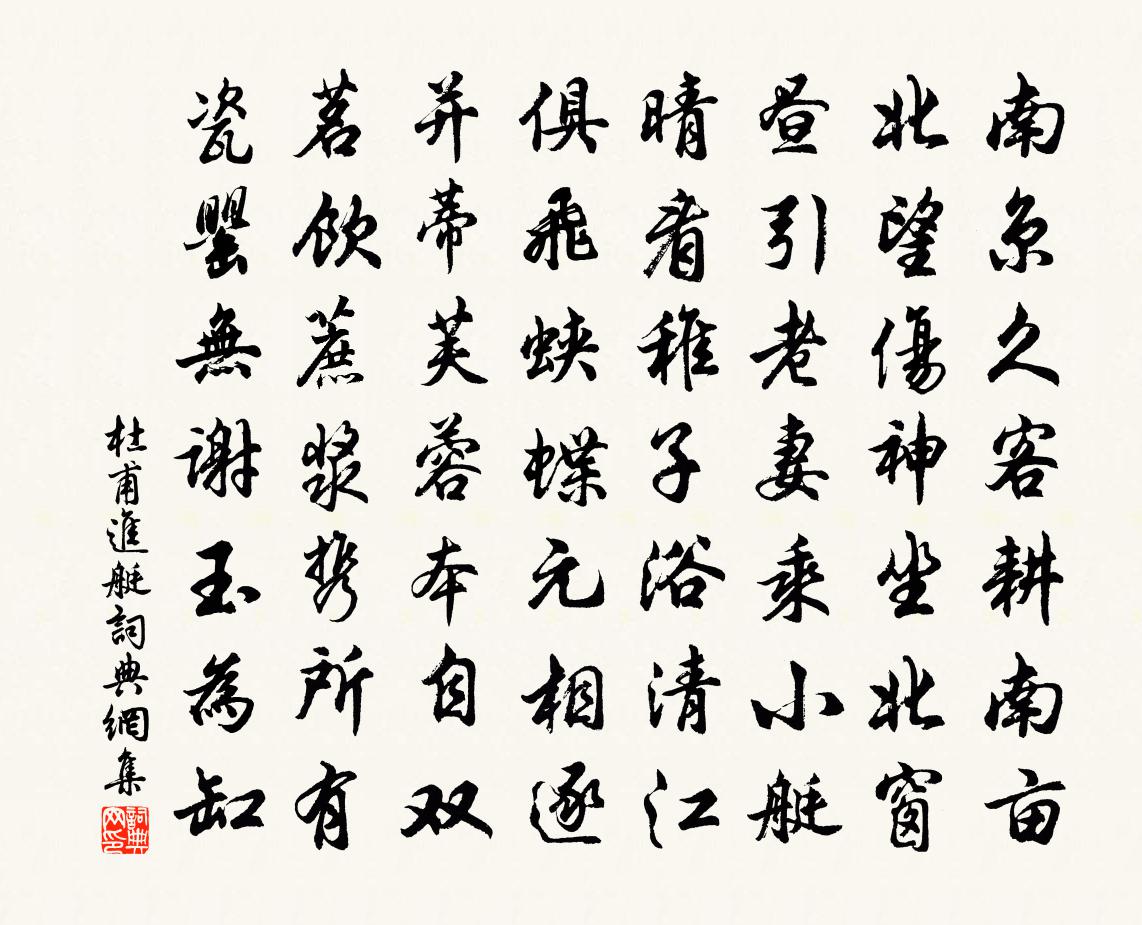 南京久客耕南亩
北望傷神坐北窗
昼引老妻乘小艇
晴看稚子浴清江
俱飛蛺蝶元相逐
并蒂芙蓉本自双
茗飲蔗漿携所有
瓷罌無謝玉為缸
杜甫進艇詞典網集
詞典网印